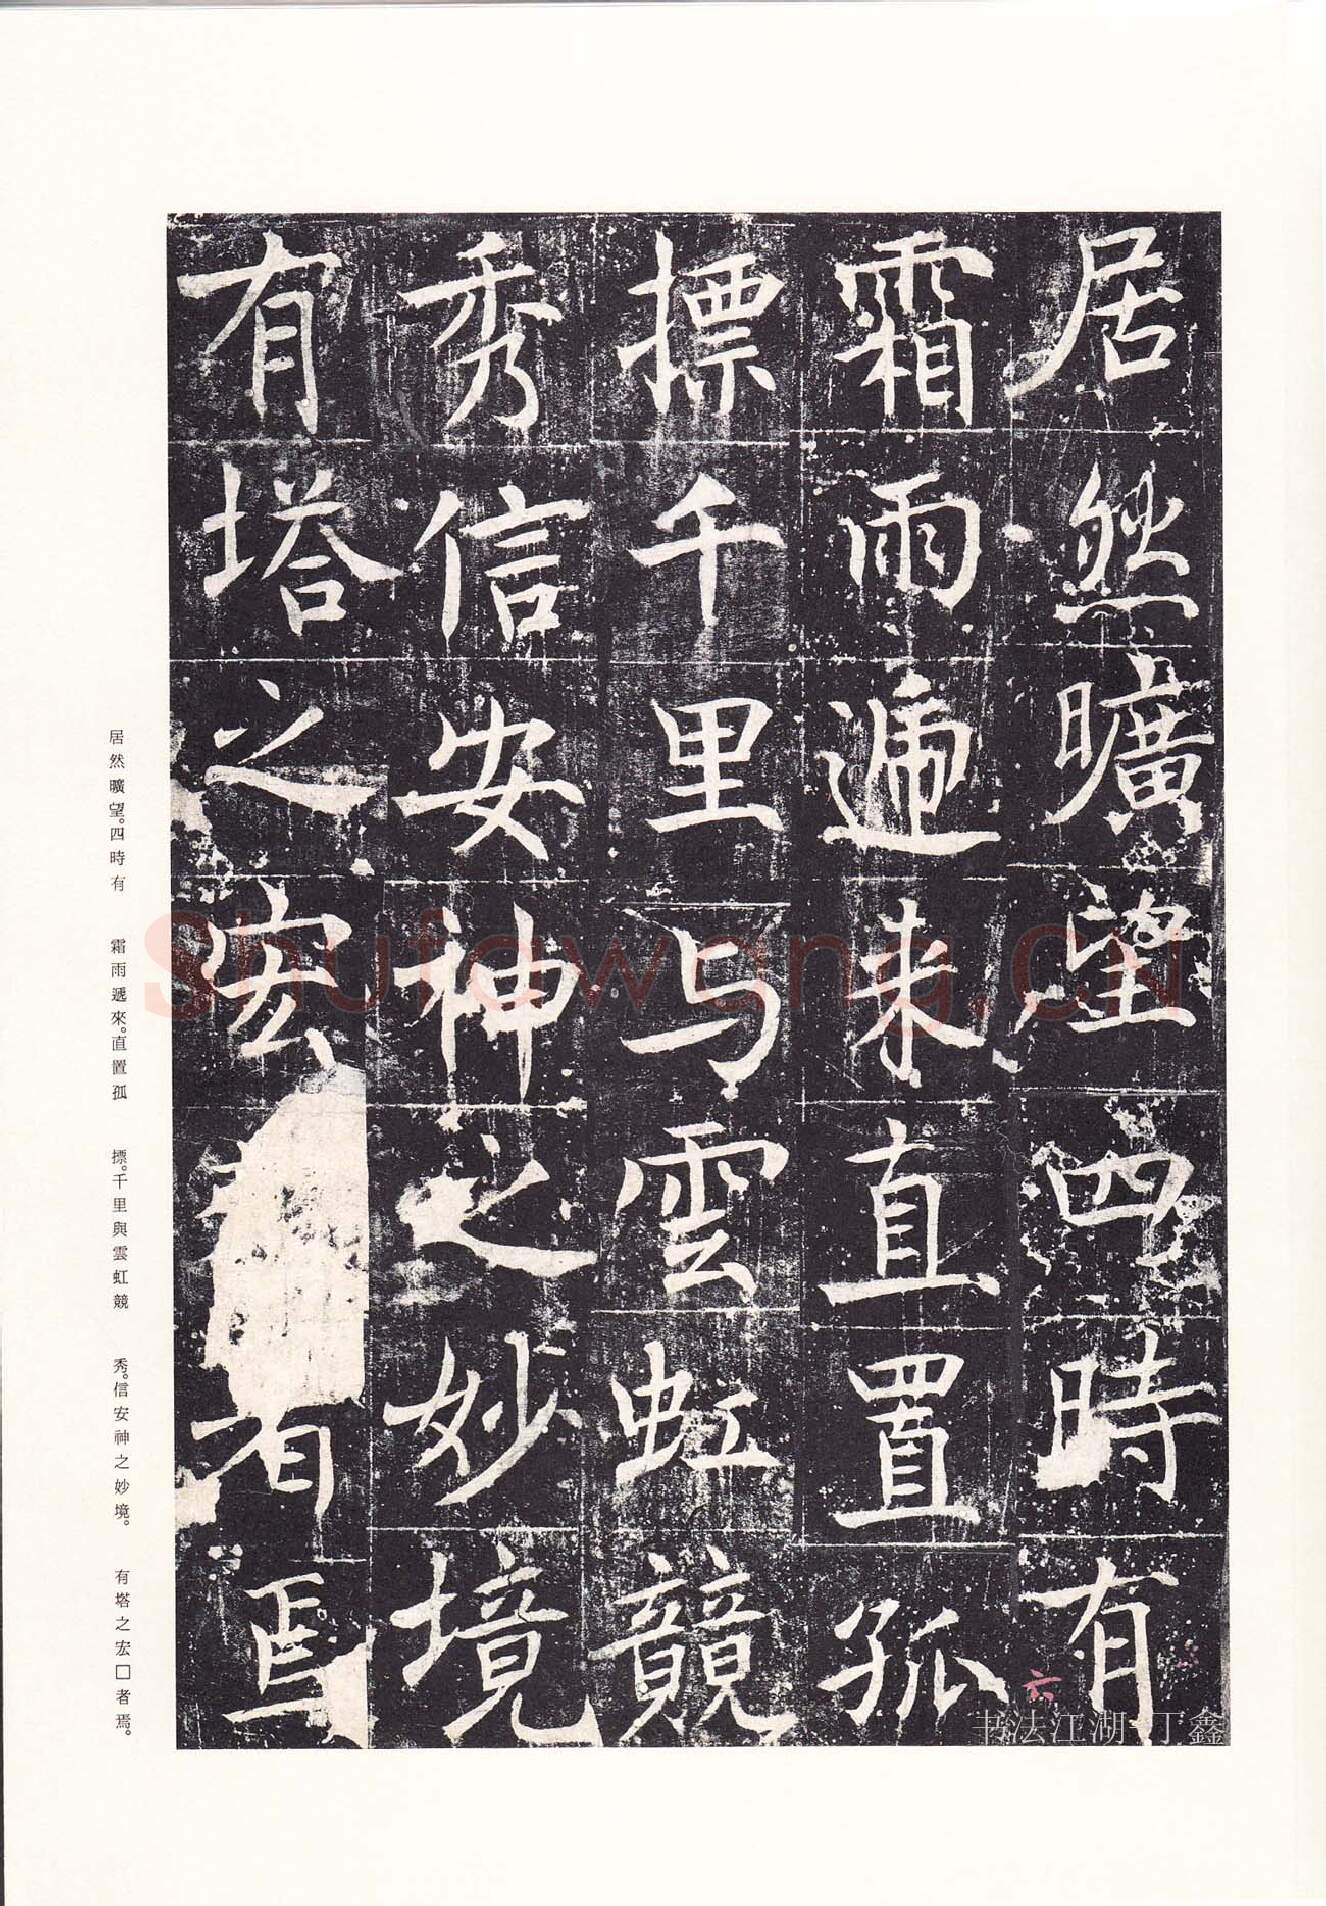 居然曠望四時有
霜雨遞来直置孤
摽千里与雲虹競
秀信安神之妙境
有塔之宏者焉
六
居然曠望。四時有
霜雨遞來。直置孤
摽。千里與雲虹競
秀。信安神之妙境。
有塔之宏□者焉。
Shufawang.cn
书法江湖 丁鑫